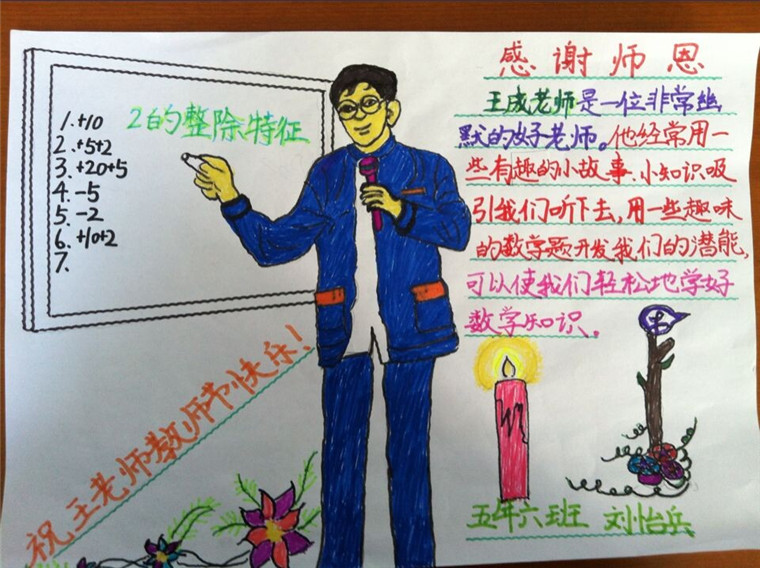 1. +10
2. +5+2
3. +20+5
4. -5
5. -2
6. +10+2
7.
2的整除特征
感谢师恩
王成老师是一位非常幽
默的好老师。他经常用一
些有趣的小故事、小知识吸
引我们听下去,用一些趣味
的数学题开发我们的潜能,
可以使我们轻松地学好
数学知识。
祝王老师教师节快乐!
五年六班 刘怡兵